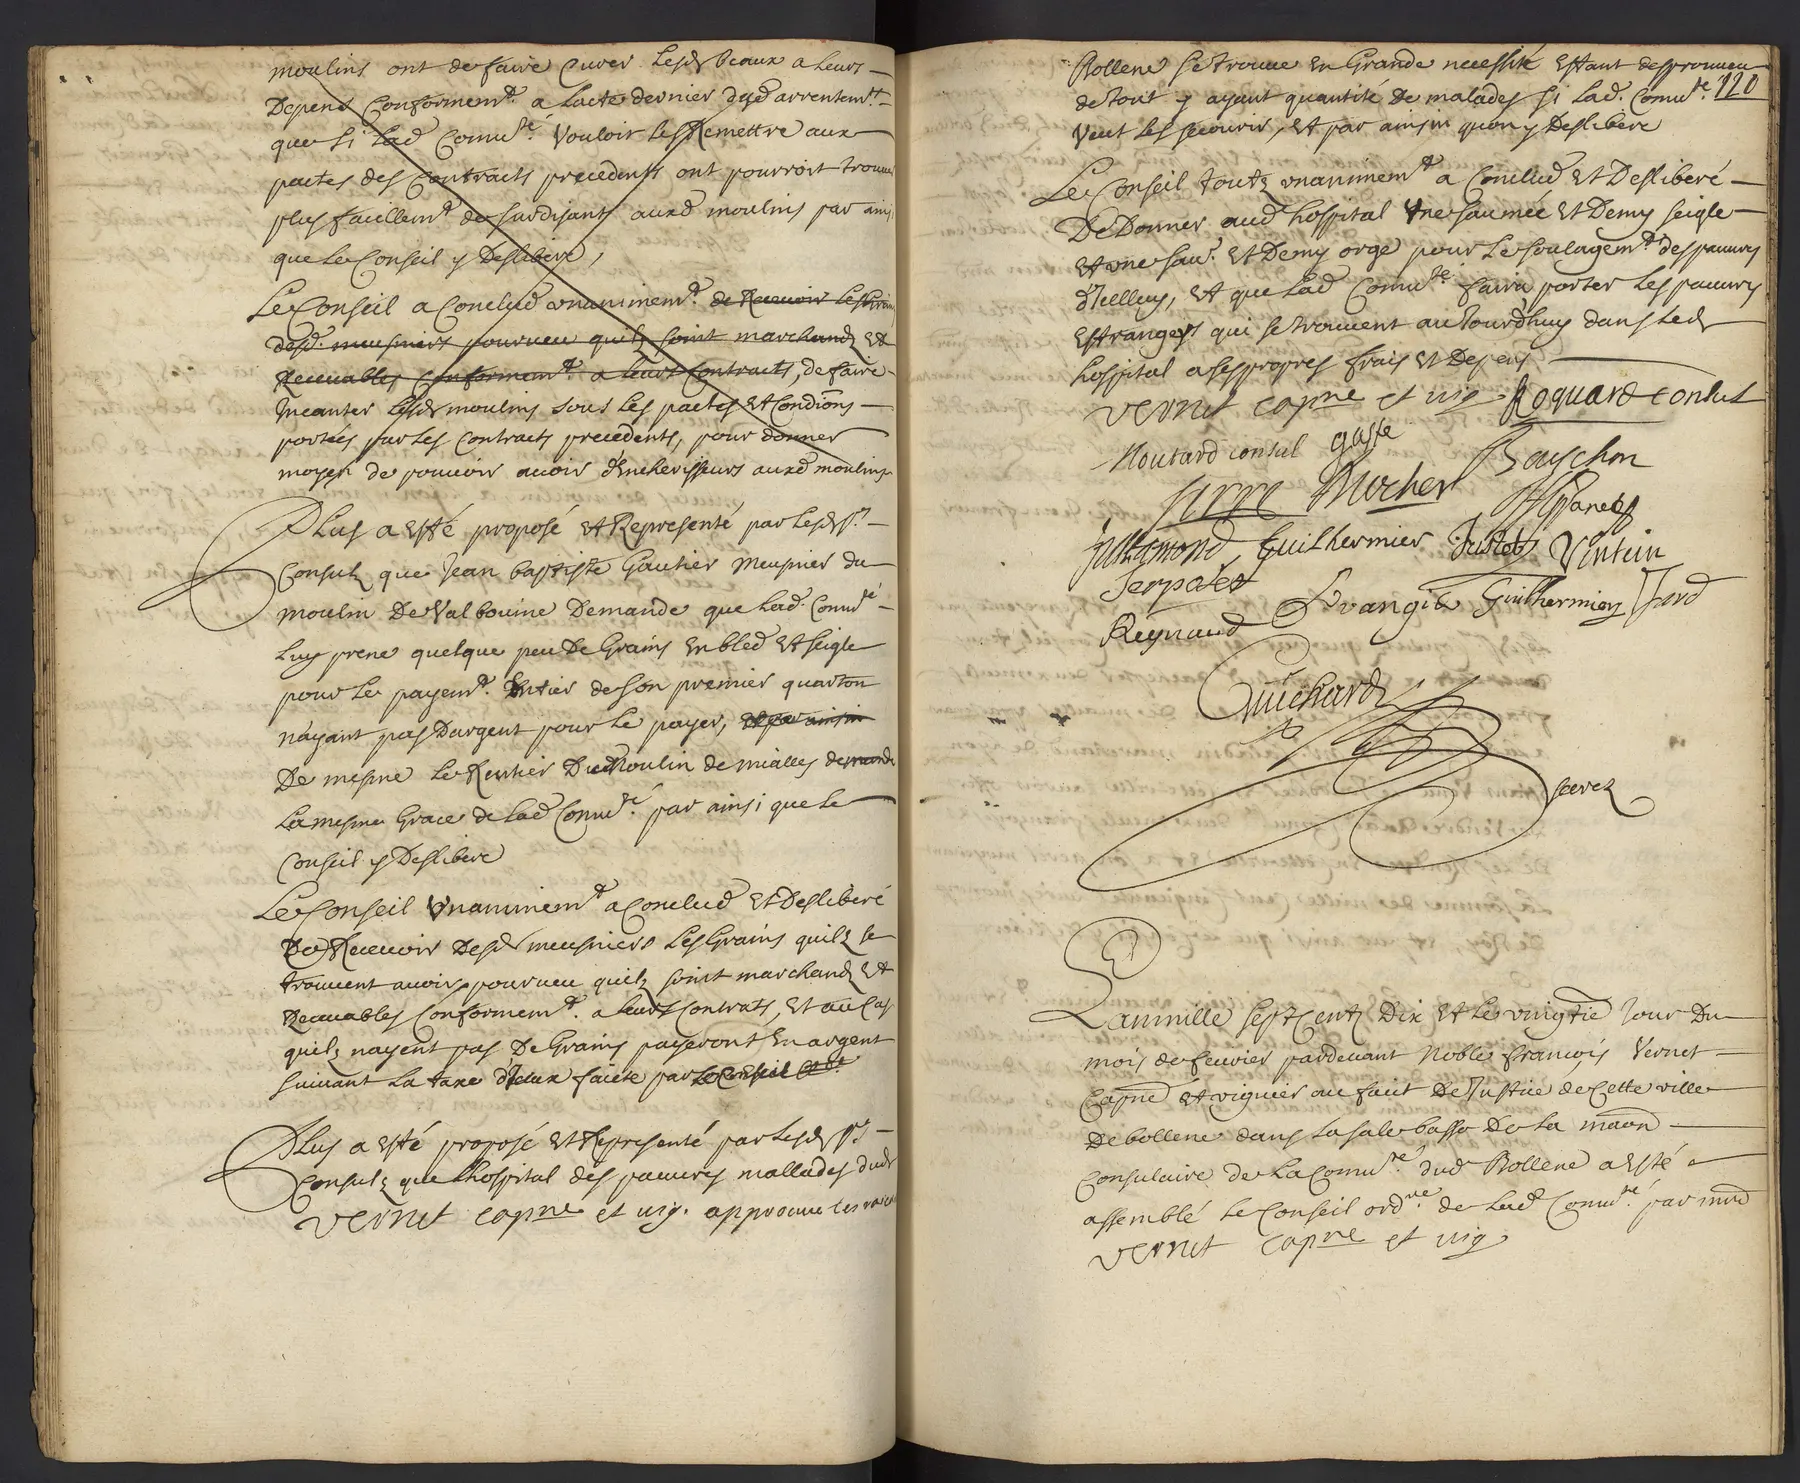 moulins ont de faire curer lesd. beaux a leurs
depens conformemt. a lacte dernier dud arrentemt.
que si lad Commté. vouloit les Remettre aux
pactes des contracts precedents ont pourroit trouver
plus faicillemt. de surdisants auxd moulins par ainsi
que le Conseil y deslibere,
Le Conseil a Conclud unanimemt. de Recevoir les Grains
desd. meusniers pourveu quilz soint marchandz et
Recevables conformemt. a leurs contracts, de faire
Incanter lesd moulins sous les pactes et Condions
portées par les contracts precedents, pour donner
moyen de pouvoir avoir d'Encherisseurs auxd moulins
Plus a esté proposé et Representé par lesd srs
Consulz que Jean baptiste Gautier meusnier du
moulin de Valbouine demande que lad. Commté.
luy prene quelque peu de Grains en bled et seigle
pour le payemt. Entier de son premier quarton
n'ayant pas d'argent pour le payer, et par ainsin
De mesme le Rentier dud Moulin de mialles demande
la mesme Grace de lad Commté. par ainsi que le
Conseil y deslibere
Le Conseil Unanimemt a Conclud et deslibéré
De Recevoir desd meusniers les Grains quilz se
trouvent avoir pourveu quilz soint marchandz et
Recevables conformemt. a leurs contrats, et au cas
quilz nayent pas de Grains payeront En argent
suivant la taxe d'Iceux faicte par le Conseil
Plus a esté proposé et Representé par lesd srs
Consulz que lhospital des pauvres mallades dud
Vernet capne et vig. approuve les
120
Bollene se trouve en Grande necessité estant desprouveu
de tout y ayant quantité de malades si lad. Commté.
veut les secourir, et par ainsin quon y deslibere
Le Conseil toutz unanimemt a Conclud et deslibéré
De donner aud hospital Une saumée et demy seigle
et une sau. et demy orge pour le soulagemt. des pauvres
d'Icelluy, et que lad Commté faira porter les pauvres
estrangers qui se trouvent au Jourdhuy dans led
hospital a ses propres frais et depens
Vernet capne et vig Roquard Consul
Noutard consul gasse Bayschon
Serre Mocher
Guilhermier Justet Vintein
Evangile Guilhermier Isard
Reynaud
Guichard
secrez
L'an mille sept Centz dix et le vingtie Jour du
mois de fevrier pardevant noble francois Vernet
Capne et viguier au faict de Justice de Cette ville
de bollene dans la sale basse de la maon
Consulaire de la Commté. dud Bollene a esté
assemblé le Conseil ordre. de lad Commté. par mnd
Vernet capne et vig